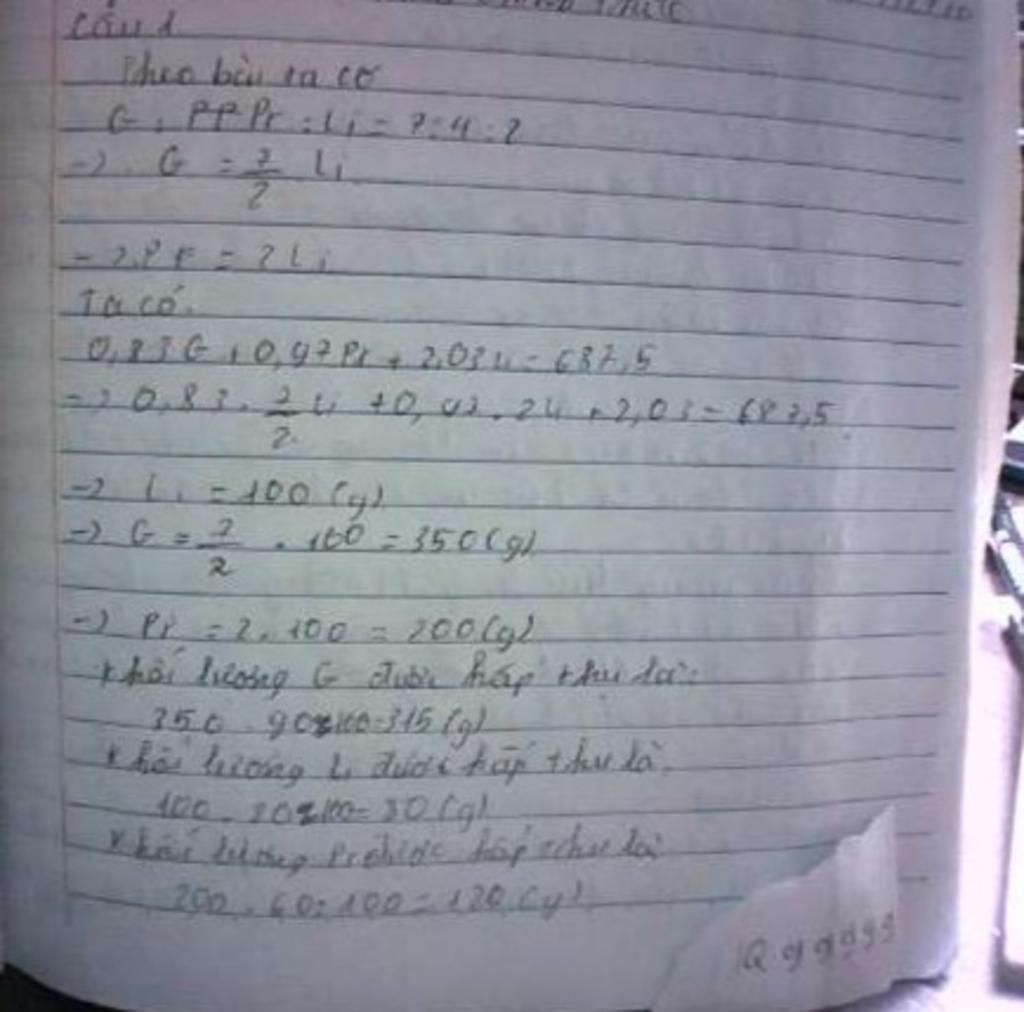 Câu 1
Theo bài ra ta có
G : Pr : Li = 7:4:2
-> G = 7/2 Li
-> Pr = 2Li
Ta có.
0,83G + 0,97Pr + 2,03Li = 687,5
-> 0,83 . 7/2 Li + 0,97 . 2Li + 2,03 = 687,5
-> Li = 100 (g)
-> G = 7/2 . 100 = 350 (g)
-> Pr = 2 . 100 = 200 (g)
khối lượng G được hấp thu là:
350 . 90:100=315 (g)
khối lượng Li được hấp thu là.
100 . 80:100= 80 (g)
khối lượng Pr được hấp thu là
200 . 60:100 = 120 (g)
IQ.99999